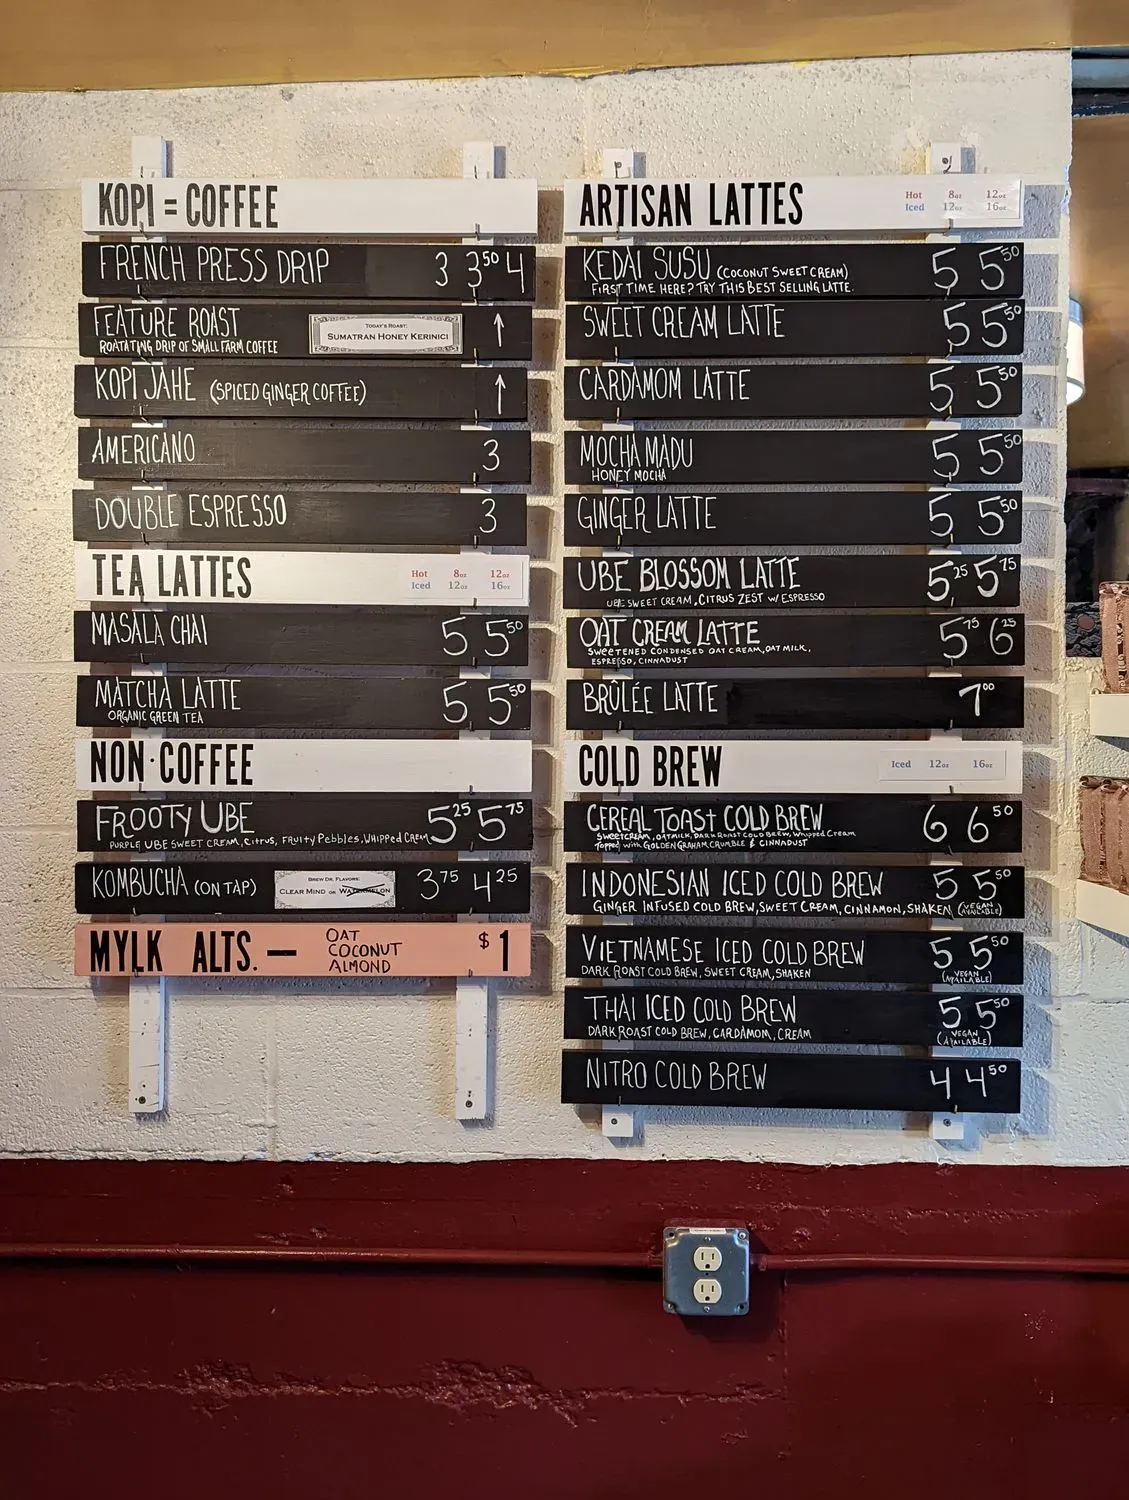 KOPI = COFFEE
FRENCH PRESS DRIP 3 3⁵⁰ 4
FEATURE ROAST ↑
ROATATING DRIP OF SMALL FARM COFFEE
TODAY'S ROAST:
SUMATRAN HONEY KERINCI
KOPI JAHE (SPICED GINGER COFFEE) ↑
AMERICANO 3
DOUBLE ESPRESSO 3
TEA LATTES
Hot 8oz 12oz
Iced 12oz 16oz
MASALA CHAI 5 5⁵⁰
MATCHA LATTE 5 5⁵⁰
ORGANIC GREEN TEA
NON·COFFEE
FROOTY UBE 5²⁵ 5⁷⁵
PURPLE UBE SWEET CREAM, Citrus, FRUITY PEBBLES, WHIPPED CREAM
KOMBUCHA (ON TAP) 3⁷⁵ 4²⁵
BREW DR. FLAVORS:
CLEAR MIND OR WATERMELON
MYLK ALTS. — $1
OAT
COCONUT
ALMOND
ARTISAN LATTES
Hot 8oz 12oz
Iced 12oz 16oz
KEDAI SUSU (COCONUT SWEET CREAM) 5 5⁵⁰
FIRST TIME HERE? TRY THIS BEST SELLING LATTE.
SWEET CREAM LATTE 5 5⁵⁰
CARDAMOM LATTE 5 5⁵⁰
MOCHA MADU 5 5⁵⁰
HONEY MOCHA
GINGER LATTE 5 5⁵⁰
UBE BLOSSOM LATTE 5²⁵ 5⁷⁵
UBE SWEET CREAM, CITRUS ZEST W/ ESPRESSO
OAT CREAM LATTE 5⁷⁵ 6²⁵
SWEETENED CONDENSED OAT CREAM, OAT MILK,
ESPRESSO, CINNADUST
BRÛLÉE LATTE 7⁰⁰
COLD BREW
Iced 12oz 16oz
CEREAL TOAST COLD BREW 6 6⁵⁰
SWEETCREAM, OATMILK, DARK ROAST COLD BREW, WHIPPED CREAM
TOPPED WITH GOLDEN GRAHAM CRUMBLE & CINNADUST
INDONESIAN ICED COLD BREW 5 5⁵⁰
GINGER INFUSED COLD BREW, SWEET CREAM, CINNAMON, SHAKEN (VEGAN AVAILABLE)
VIETNAMESE ICED COLD BREW 5 5⁵⁰
DARK ROAST COLD BREW, SWEET CREAM, SHAKEN (VEGAN AVAILABLE)
THAI ICED COLD BREW 5 5⁵⁰
DARK ROAST COLD BREW, CARDAMOM, CREAM (VEGAN AVAILABLE)
NITRO COLD BREW 4 4⁵⁰